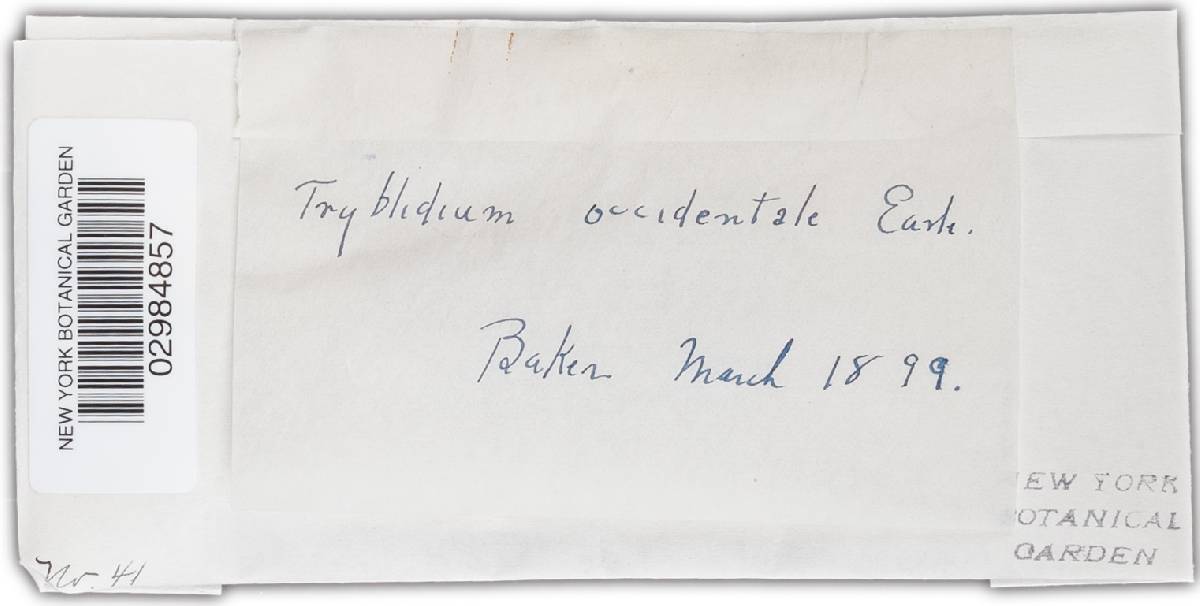 NEW YORK BOTANICAL GARDEN
02984857
Tryblidium occidentale Earle.
Baker March 1899.
No. 41
EW YORK
OTANICAL
GARDEN